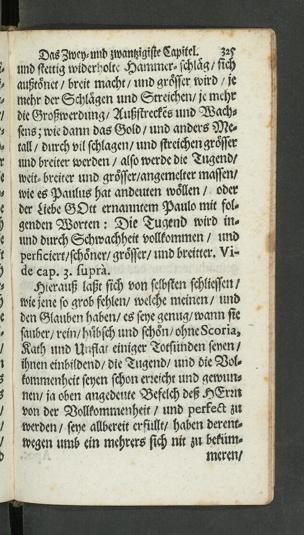 Das Zwey- und zwantzigiste Capitel. 325
und stettig widerholte Hammer-schläg/ sich
außtönet/ breit macht/ und grösser wird/ je
mehr der Schlägen und Streichen/ je mehr
die Großwerdung/ Außstreckes und Wach-
sens; wie dann das Gold/ und anders Me-
tall/ durch vil schlagen/ und streichen grösser
und breiter werden/ also werde die Tugend/
weit-breiter und grösser/ angemelter massen/
wie es Paulus hat andeuten wöllen/ oder
der Liebe GOtt ernanntem Paulo mit fol-
genden Worten: Die Tugend wird in-
und durch Schwachheit vollkommen/ und
perficiert/ schöner/ grösser/ und breitter. Vi-
de cap. 3. suprà.
Hierauß laßt sich von selbsten schliessen/
wie jene so grob fehlen/ welche meinen/ und
den Glauben haben/ es seye genug/ wann sie
sauber/ rein/ hübsch und schön/ ohne Scoria,
Kath und Unflat einiger Totsünden seyen/
ihnen einbildend/ die Tugend/ und die Vol-
kommenheit seyen schon erreicht und gewun-
nen/ ja oben angedeute Befelch deß HErrn
von der Vollkommenheit/ und perfect zu
werden/ seye allbereit erfüllt/ haben derent-
wegen umb ein mehrers sich nit zu beküm-
meren/